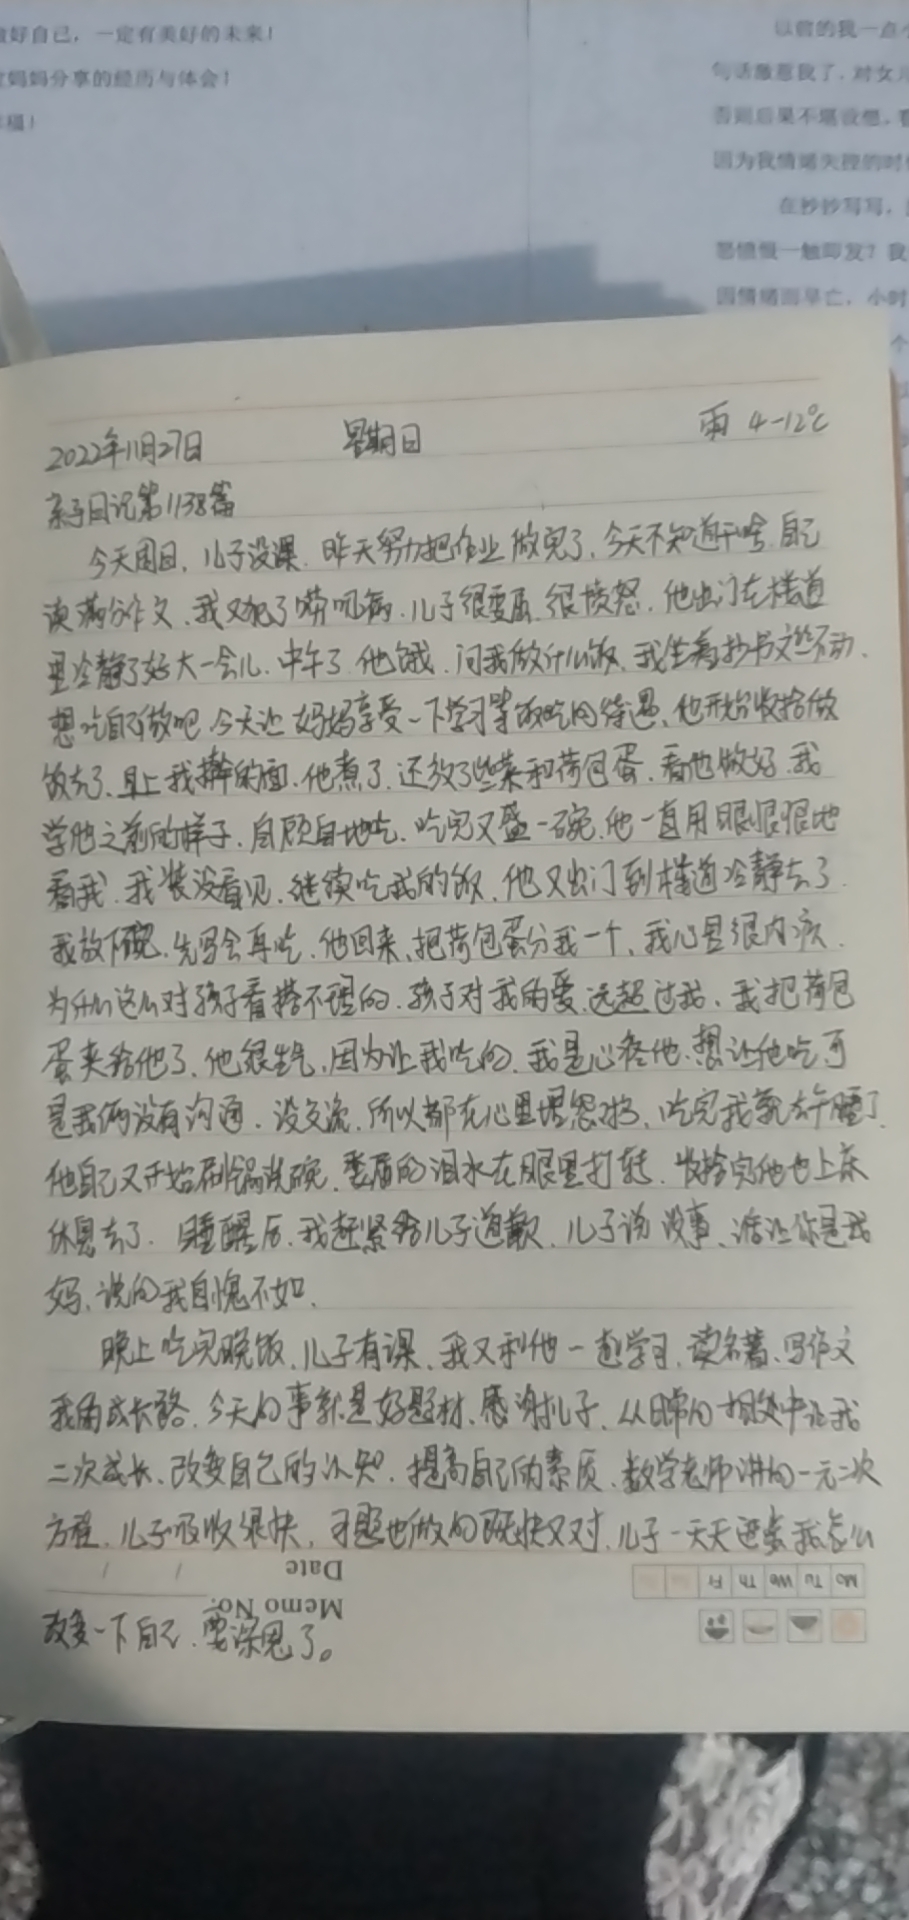 做好自己，一定有美好的未来！
妈妈分享的经历与体会！
福！
以前的我一点
句话激惹我了，对女儿
否则后果不堪设想，
因为我情绪失控的时
在抄抄写写，
怒愤恨一触即发？我
因情绪而早亡，小时
个
2022年11月27日 星期日 雨 4-12℃
亲子日记第1138篇
今天周日，儿子没课，昨天努力把作业做完了，今天不知道干啥，自己
读满分作文，我又犯了唠叨病，儿子很委屈，很愤怒，他出门在楼道
里冷静了好大一会儿，中午了，他饿，问我做什么饭，我坐着抄书文丝不动，
想吃自己做吧，今天让妈妈享受一下学习等饭吃的待遇，他开始收拾做
饭去了，早上我擀的面，他煮了，还放了些菜和荷包蛋，看他做好，我
学他之前的样子，自顾自地吃，吃完又盛一碗，他一直用眼恨恨地
看我，我装没看见，继续吃我的饭，他又出门到楼道冷静去了，
我放下碗，先写会再吃，他回来，把荷包蛋分我一个，我心里很内疚，
为什么这么对孩子看搭不理的，孩子对我的爱，远超过我，我把荷包
蛋夹给他了，他很生气，因为让我吃的，我是心疼他，想让他吃，可
是我俩没有沟通，没交流，所以都在心里埋怨，吃完我就去午睡了，
他自己又开始刷锅洗碗，委屈的泪水在眼里打转，收拾完他也上床
休息去了，睡醒后，我赶紧给儿子道歉，儿子说没事，谁让你是我
妈，说的我自愧不如，
晚上吃完晚饭，儿子有课，我又和他一起学习，读名著，写作文
我的成长路，今天的事就是好题材，感谢儿子，从日常的相处中让我
二次成长，改变自己的认知，提高自己的素质，数学老师讲的一元二次
方程，儿子吸收很快，习题也做的既快又对，儿子一天天进步，我怎么
Date / /
Mo Tu We Th Fr
Memo No.
改变一下自己，要深思了。